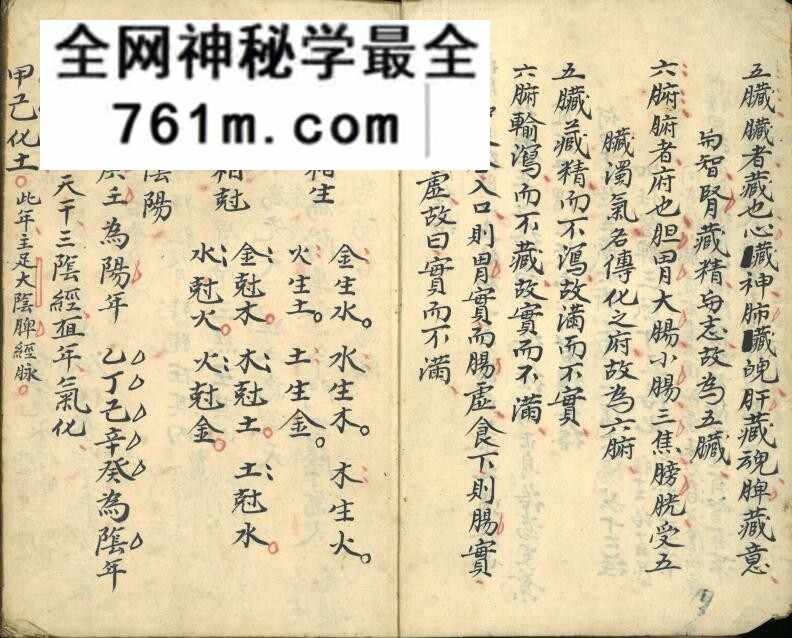 全网神秘学最全
761m.com
五臟臟者藏也心藏神肺藏魄肝藏魂脾藏意
与智腎藏精与志故為五臟
六腑腑者府也胆胃大腸小腸三焦膀胱受五
臟濁氣名傳化之府故為六腑
五臟藏精而不瀉故滿而不實
六腑輸瀉而不藏故實而不滿
入口則胃實而腸虛食下則腸實
虛故曰實而不滿
相生
金生水。水生木。木生火。
火生土。土生金。
相尅
金尅木。木尅土。土尅水
水尅火。火尅金。
陰陽
庚壬為陽年 乙丁己辛癸為陰年
天干三陰經值年氣化
甲己化土。此年主足大陰脾經脉。